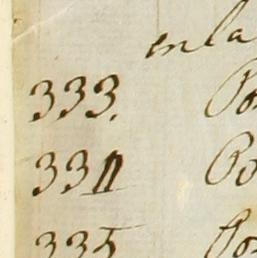 en la
333. Po
334 Po
335 Po